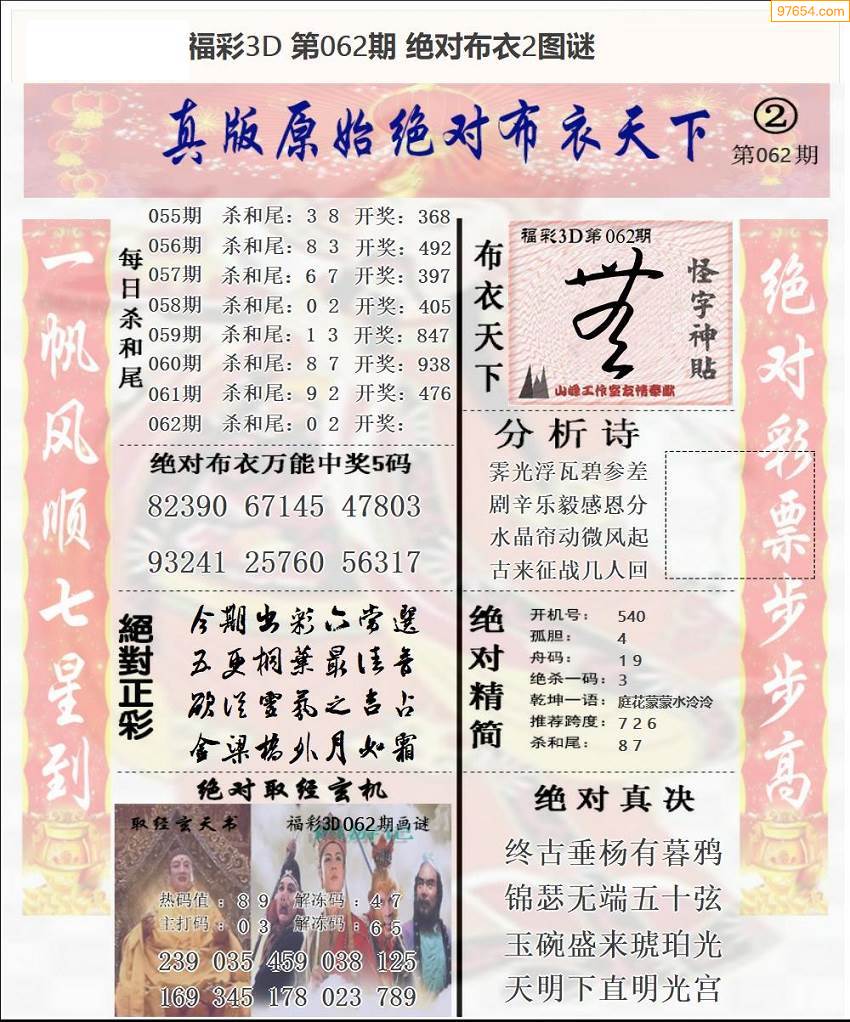 97654.com
福彩3D 第062期 绝对布衣2图谜
真版原始绝对布衣天下
②
第062期
一帆风顺七星到
每日杀和尾
055期 杀和尾：3 8 开奖：368
056期 杀和尾：8 3 开奖：492
057期 杀和尾：6 7 开奖：397
058期 杀和尾：0 2 开奖：405
059期 杀和尾：1 3 开奖：847
060期 杀和尾：8 7 开奖：938
061期 杀和尾：9 2 开奖：476
062期 杀和尾：0 2 开奖：
绝对布衣万能中奖5码
82390 67145 47803
93241 25760 56317
絕對正彩
今期出彩六常選
五更桐葉最佳音
欲从靈氣之吉占
金梁橋外月如霜
绝对取经玄机
取经玄天书
福彩3D062期画谜
热码值：8 9 解冻码：4 7
主打码：0 3 解冻码：6 5
239 035 459 038 125
169 345 178 023 789
布衣天下
福彩3D第062期
怪字神貼
山峰工作室友情奉献
分析诗
霁光浮瓦碧参差
剧辛乐毅感恩分
水晶帘动微风起
古来征战几人回
绝对精简
开机号： 540
孤胆： 4
舟码： 1 9
绝杀一码：3
乾坤一语：庭花蒙蒙水泠泠
推荐跨度：7 2 6
杀和尾： 8 7
绝对真决
终古垂杨有暮鸦
锦瑟无端五十弦
玉碗盛来琥珀光
天明下直明光宫
绝对彩票步步高